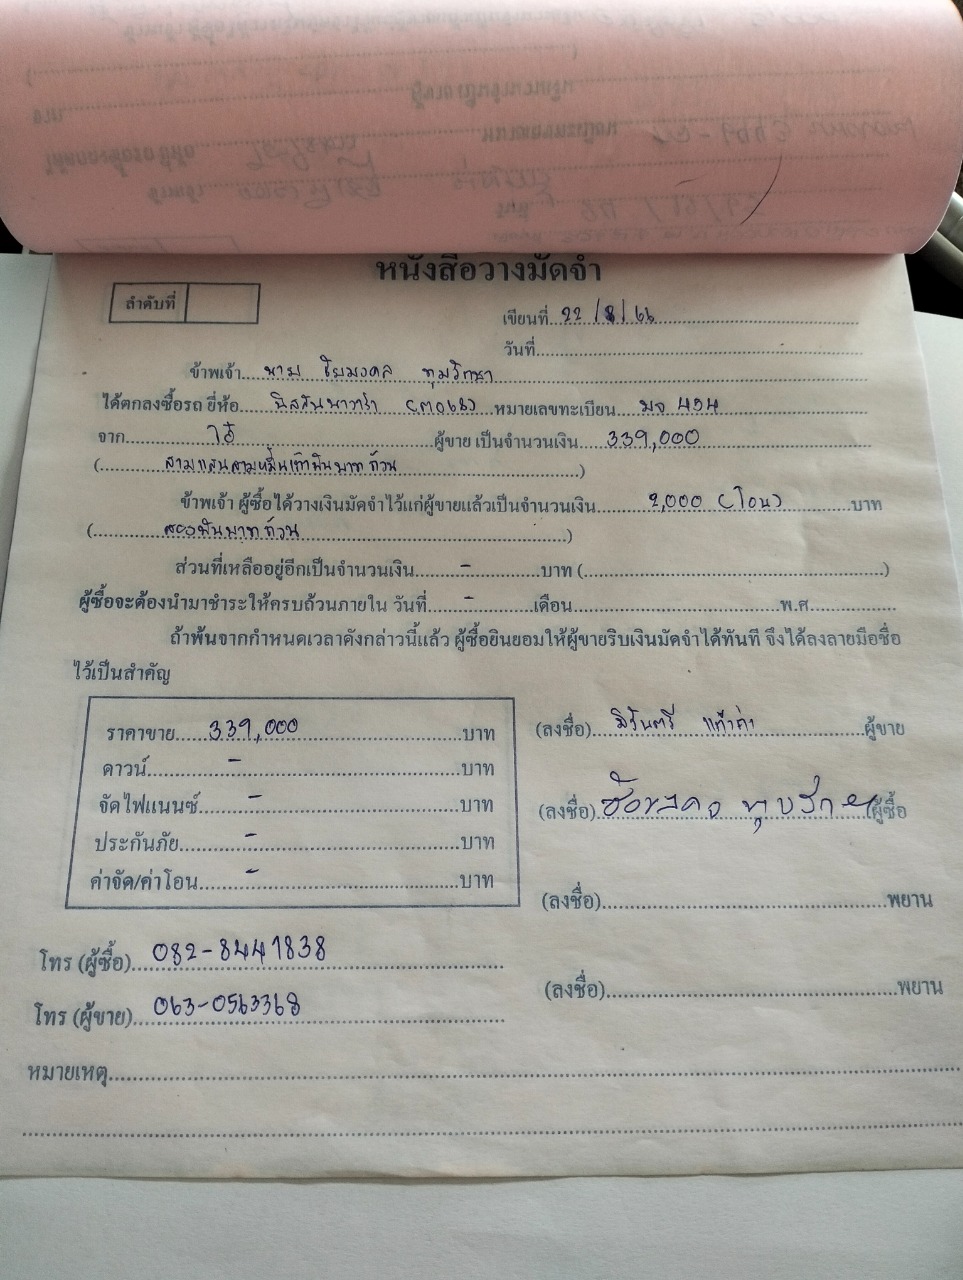 หนังสือวางมัดจำ
ลำดับที่
เขียนที่ 22/8/66
วันที่
ข้าพเจ้า นาย ชัยมงคล ทุมรักษา
ได้ตกลงซื้อรถ ยี่ห้อ นิสสันนาวาร่า หมายเลขทะเบียน 454
จาก ผู้ขาย เป็นจำนวนเงิน 339,000
(สามแสนสามหมื่นเก้าพันบาทถ้วน)
ข้าพเจ้า ผู้ซื้อได้วางเงินมัดจำไว้แก่ผู้ขายแล้วเป็นจำนวนเงิน 2,000 (โอน) บาท
(สองพันบาทถ้วน)
ส่วนที่เหลืออยู่อีกเป็นจำนวนเงิน - บาท ( )
ผู้ซื้อจะต้องนำมาชำระให้ครบถ้วนภายใน วันที่ - เดือน พ.ศ.
ถ้าพ้นจากกำหนดเวลาดังกล่าวนี้แล้ว ผู้ซื้อยินยอมให้ผู้ขายริบเงินมัดจำได้ทันที จึงได้ลงลายมือชื่อ
ไว้เป็นสำคัญ
ราคาขาย 339,000 บาท
ดาวน์ - บาท
จัดไฟแนนซ์ - บาท
ประกันภัย - บาท
ค่าจัด/ค่าโอน - บาท
(ลงชื่อ) ผู้ขาย
(ลงชื่อ) ผู้ซื้อ
(ลงชื่อ) พยาน
(ลงชื่อ) พยาน
โทร (ผู้ซื้อ) 082-8441838
โทร (ผู้ขาย) 063-0563368
หมายเหตุ